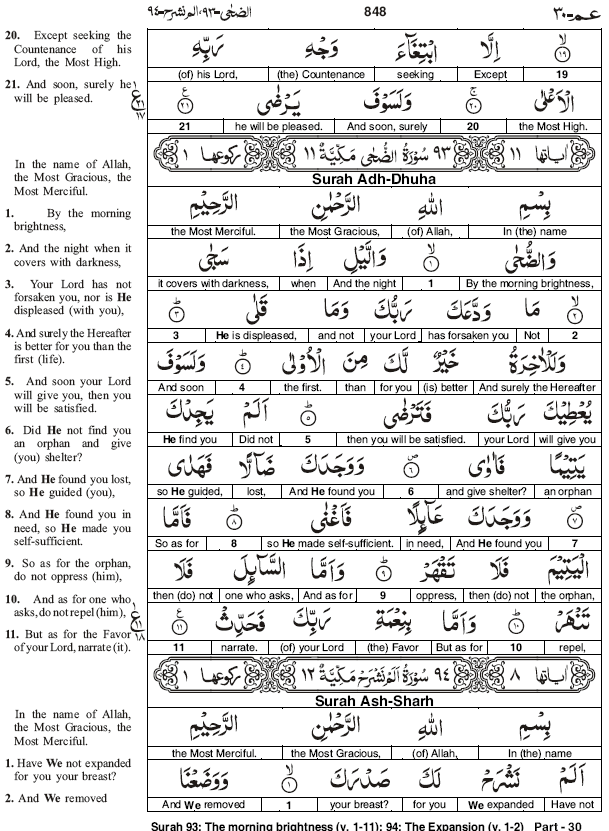 الضحى-٩٣، الم نشرح-٩٤ 848 عـم-٣٠
20. Except seeking the
Countenance of his
Lord, the Most High.
21. And soon, surely he
will be pleased.
In the name of Allah,
the Most Gracious, the
Most Merciful.
1. By the morning
brightness,
2. And the night when it
covers with darkness,
3. Your Lord has not
forsaken you, nor is He
displeased (with you),
4. And surely the Hereafter
is better for you than the
first (life).
5. And soon your Lord
will give you, then you
will be satisfied.
6. Did He not find you
an orphan and give
(you) shelter?
7. And He found you lost,
so He guided (you),
8. And He found you in
need, so He made you
self-sufficient.
9. So as for the orphan,
do not oppress (him),
10. And as for one who
asks, do not repel (him),
11. But as for the Favor
of your Lord, narrate (it).
In the name of Allah,
the Most Gracious, the
Most Merciful.
1. Have We not expanded
for you your breast?
2. And We removed
١٩ اِلَّا ابْتِغَآءَ وَجْهِ رَبِّهِ
(of) his Lord, (the) Countenance seeking Except 19
الْاَعْلٰى ٢٠ وَلَسَوْفَ يَرْضٰى ٢١
21 he will be pleased. And soon, surely 20 the Most High.
اٰياتها ١١ ٩٣ سُوْرَةُ الضُّحٰى مَكِّيَّةٌ ١١ ركوعها ١
Surah Adh-Dhuha
بِسْمِ اللهِ الرَّحْمٰنِ الرَّحِيْمِ
the Most Merciful. the Most Gracious, (of) Allah, In (the) name
وَالضُّحٰى ١ وَالَّيْلِ اِذَا سَجٰى
it covers with darkness, when And the night 1 By the morning brightness,
٢ مَا وَدَّعَكَ رَبُّكَ وَمَا قَلٰى ٣
3 He is displeased, and not your Lord has forsaken you Not 2
وَلَلْاٰخِرَةُ خَيْرٌ لَّكَ مِنَ الْاُوْلٰى ٤ وَلَسَوْفَ
And soon 4 the first. than for you (is) better And surely the Hereafter
يُعْطِيْكَ رَبُّكَ فَتَرْضٰى ٥ اَلَمْ يَجِدْكَ
He find you Did not 5 then you will be satisfied. your Lord will give you
يَتِيْمًا فَاٰوٰى ٦ وَوَجَدَكَ ضَآلًّا فَهَدٰى
so He guided, lost, And He found you 6 and give shelter? an orphan
٧ وَوَجَدَكَ عَآىِٕلًا فَاَغْنٰى ٨ فَاَمَّا
So as for 8 so He made self-sufficient. in need, And He found you 7
الْيَتِيْمَ فَلَا تَقْهَرْ ٩ وَاَمَّا السَّآىِٕلَ فَلَا
then (do) not one who asks, And as for 9 oppress, then (do) not the orphan,
تَنْهَرْ ١٠ وَاَمَّا بِنِعْمَةِ رَبِّكَ فَحَدِّثْ ١١
11 narrate. (of) your Lord (the) Favor But as for 10 repel,
اٰياتها ٨ ٩٤ سُوْرَةُ اَلَمْ نَشْرَحْ مَكِّيَّةٌ ١٢ ركوعها ١
Surah Ash-Sharh
بِسْمِ اللهِ الرَّحْمٰنِ الرَّحِيْمِ
the Most Merciful. the Most Gracious, (of) Allah, In (the) name
اَلَمْ نَشْرَحْ لَكَ صَدْرَكَ ١ وَوَضَعْنَا
And We removed 1 your breast? for you We expanded Have not
Surah 93: The morning brightness (v. 1-11); 94: The Expansion (v. 1-2) Part - 30